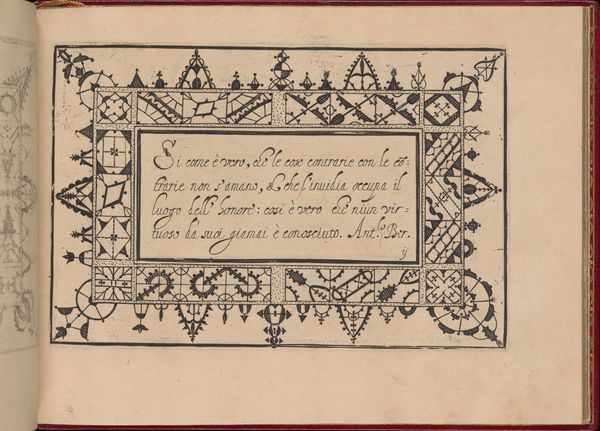 Si come è vero, che le cose contrarie con le cõ-
trarie non s'amano, & che l'inuidia occupa il
luogo dell' honore: cosi è vero che niun vir-
tuoso da suoi giamai è conosciuto. Ant.º Ber.
ij